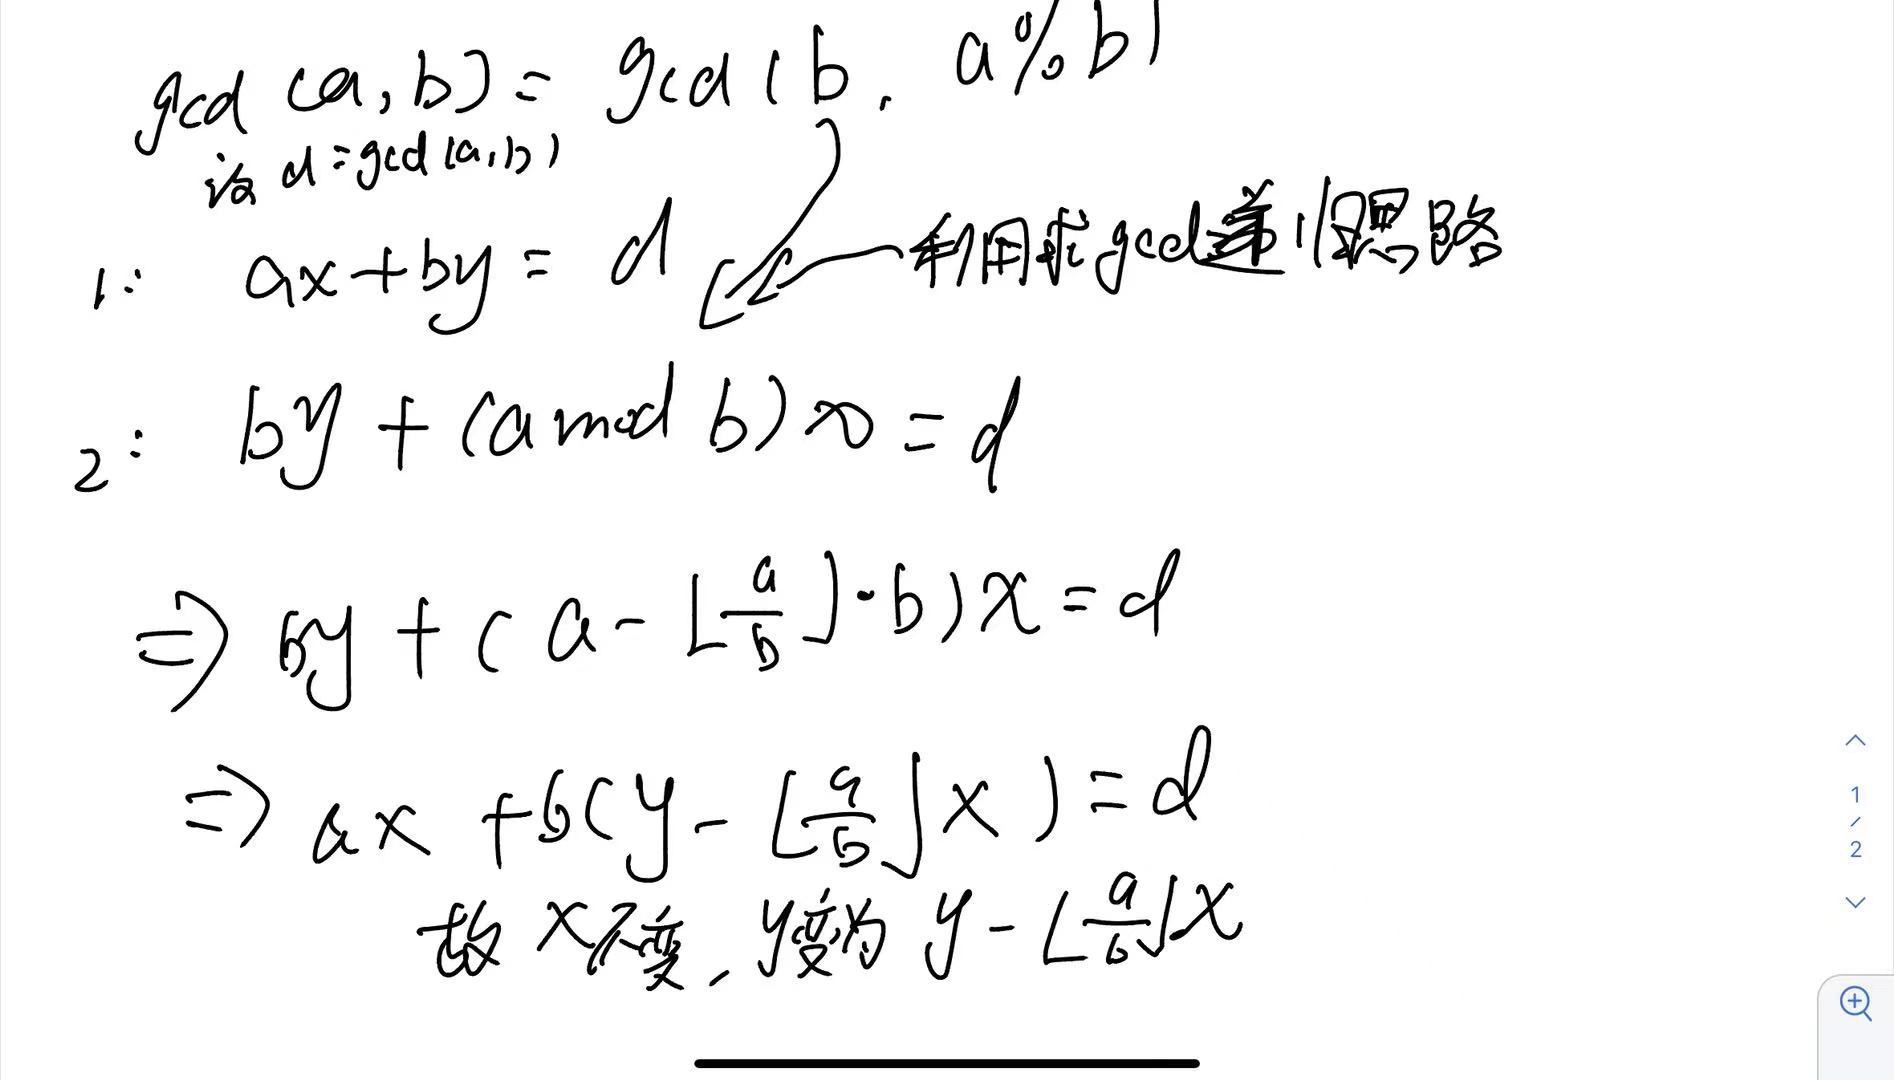 gcd (a, b) = gcd (b, a%b)
设 d = gcd (a, b)
1: ax+by = d 利用求gcd递归思路
2: by + (a mod b) x = d
⇒ by + ( a - ⌊a/b⌋·b ) x = d
⇒ ax + b(y - ⌊a/b⌋x) = d
故 x不变, y变为 y - ⌊a/b⌋x
1
/
2